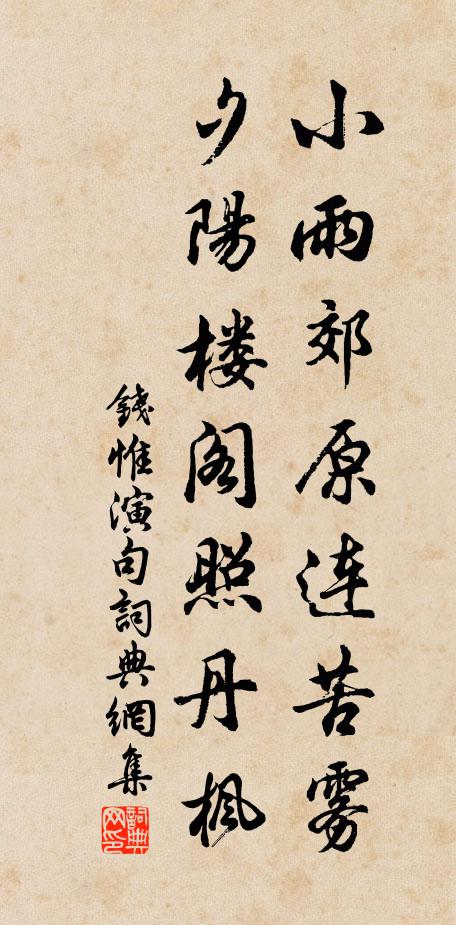 小雨郊原連苦雾
夕陽楼阁照丹楓
錢惟演句詞典網集
詞典网印